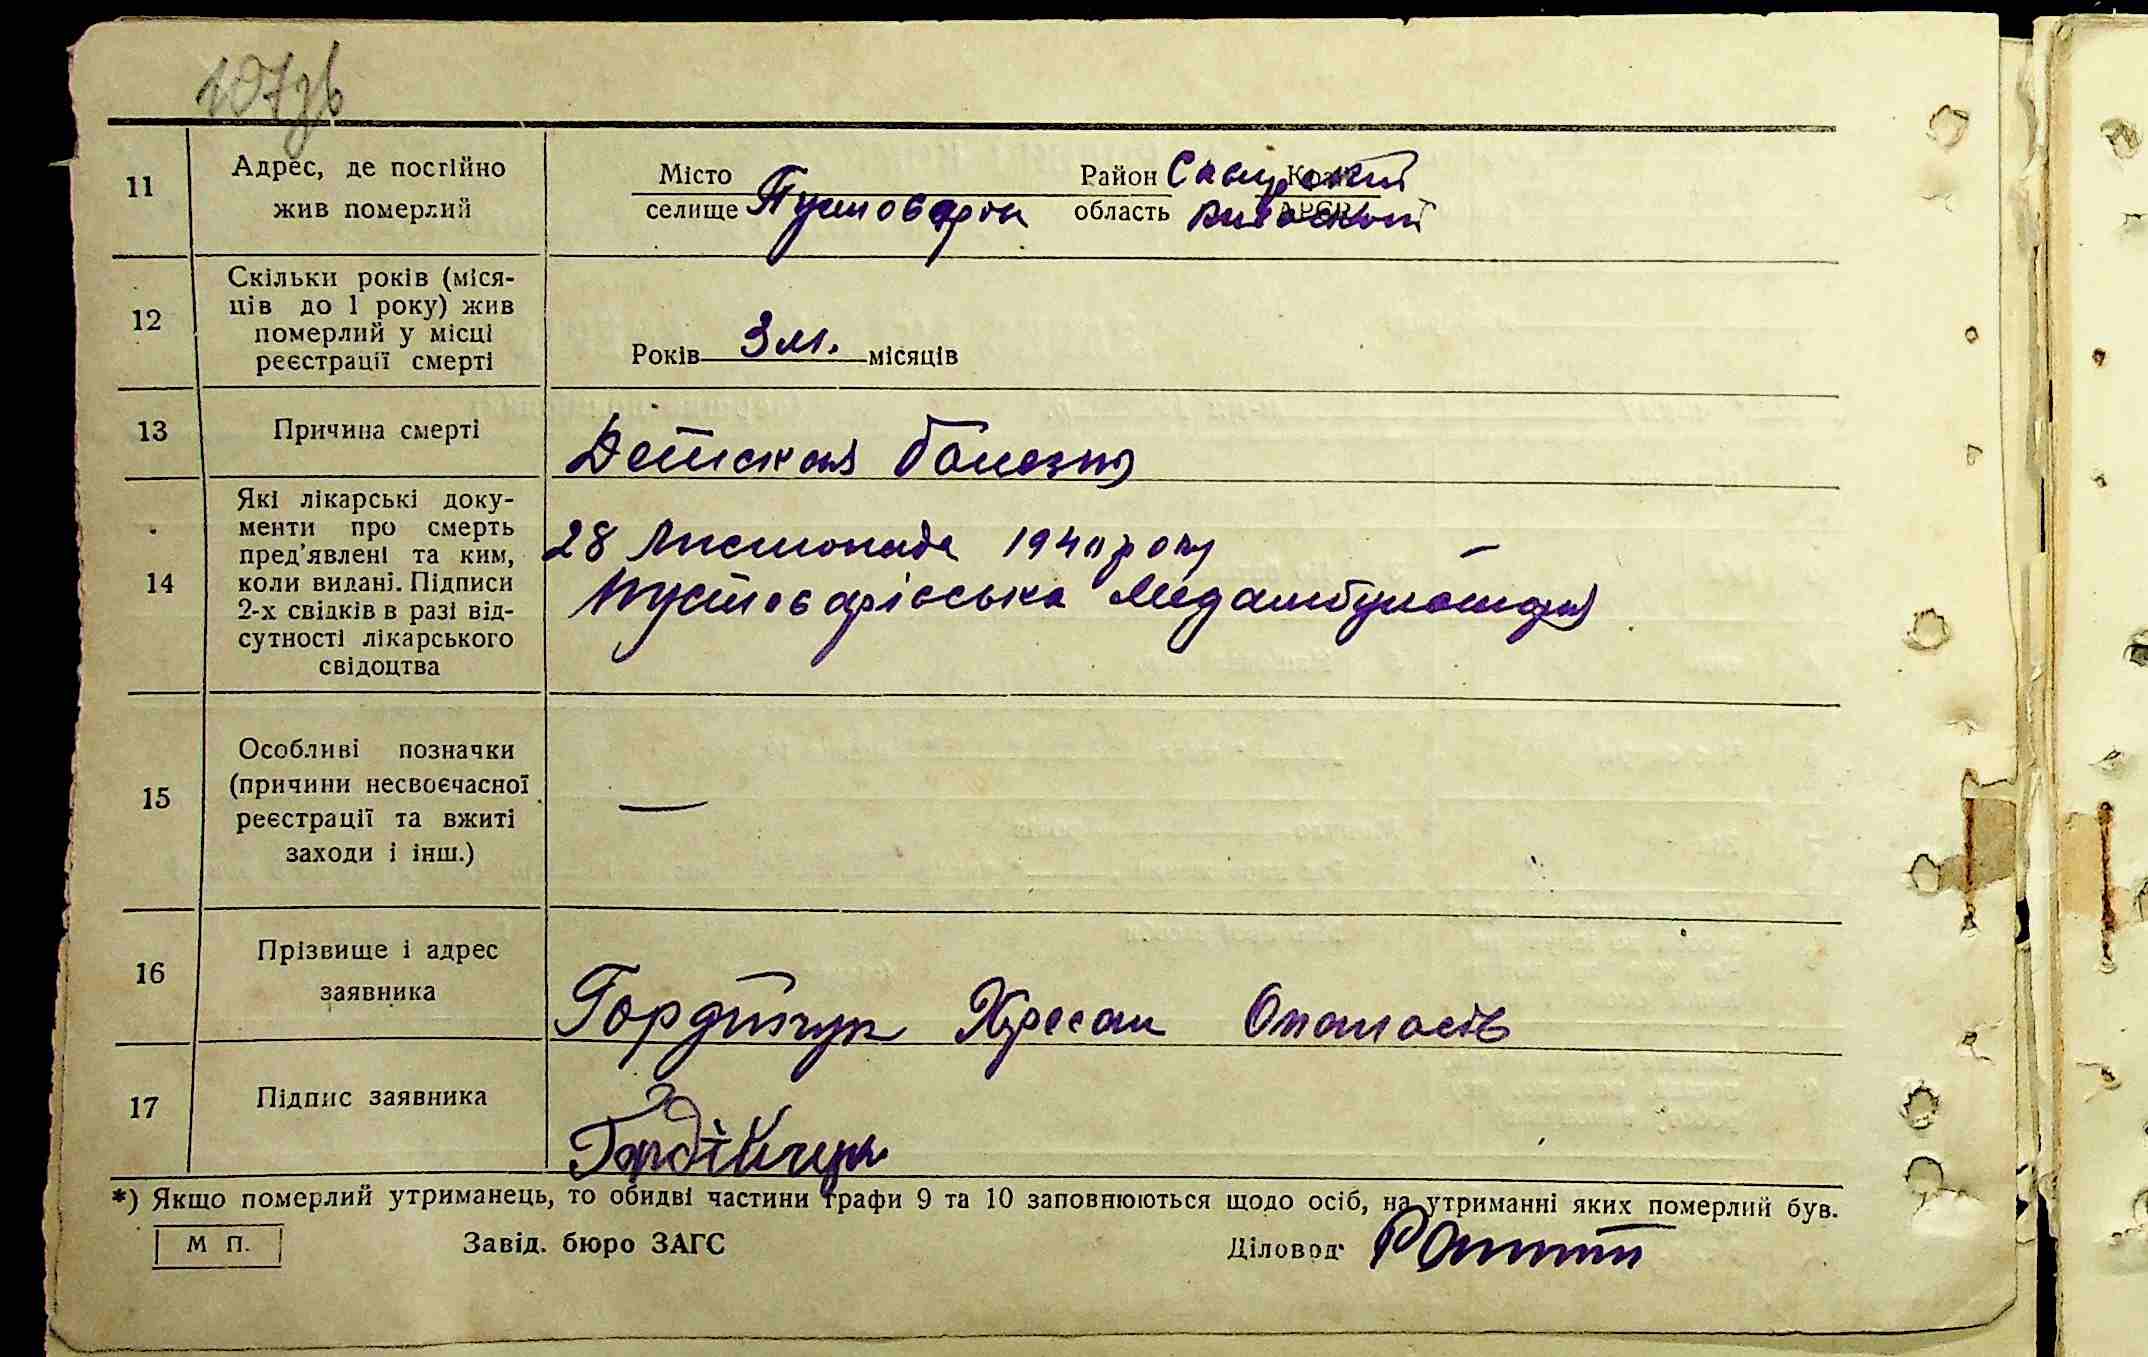 107зв
11 Адрес, де постійно жив померлий
Місто селище Пустоварка Район Сквирський Край
область Київської АРСР
12 Скільки років (місяців до 1 року) жив померлий у місці реєстрації смерті
Років 3 м. місяців
13 Причина смерті Детская болезнь
14 Які лікарські документи про смерть пред'явлені та ким, коли видані. Підписи 2-х свідків в разі відсутності лікарського свідоцтва
28 Листопада 1940 року —
Пустоварівська Медамбулаторія
15 Особливі позначки (причини несвоєчасної реєстрації та вжиті заходи і інш.) —
16 Прізвище і адрес заявника
Гордійчук Хресан
17 Підпис заявника Гордійчук
*) Якщо померлий утриманець, то обидві частини графи 9 та 10 заповнюються щодо осіб, на утриманні яких померлий був.
М П. Завід. бюро ЗАГС Діловод